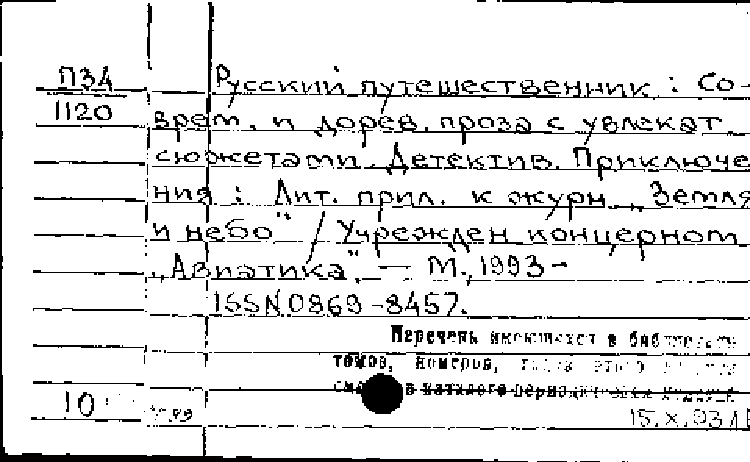 П34
1120
Русский путешественник : Со-
врем. и дорев. проза с увлекат.
сюжетами. Детектив. Приключе
ния : Лит. прил. к журн. „Земля
и небо" / Учрежден концерном
„Авиатика". — М., 1993 -
ISSN 0869-8457.
Перечень имеющихся в библиотеке
томов, номеров, годов этого
в каталоге периодических
10
15.X.93